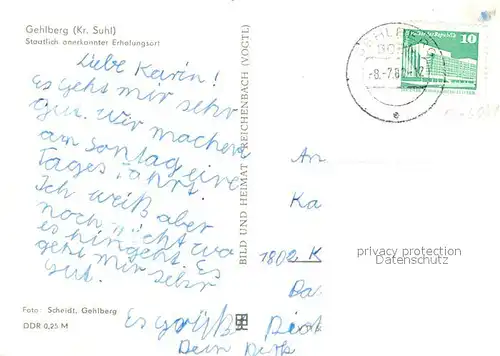 Gehlberg (Kr. Suhl)
Staatlich anerkannter Erholungsort
Liebe Karin!
Es geht mir sehr
gut. Wir machen
am Sontag eine
Tages fahrt.
Ich weiß aber
noch nicht wo
es hingeht. Es
geht mir sehr
gut.
Es grüßt
Dein Dirk
Foto: Scheidt, Gehlberg
DDR 0,25 M
BILD UND HEIMAT REICHENBACH (VOGTL)
-8.-7.80-12
10
An
Ka
1802 K
privacy protection
Datenschutz